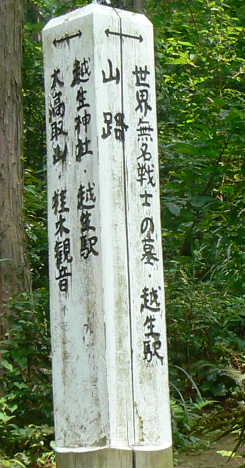 世界無名戦士の墓・越生駅
山路
越生神社・越生駅
大高取山・桂木観音